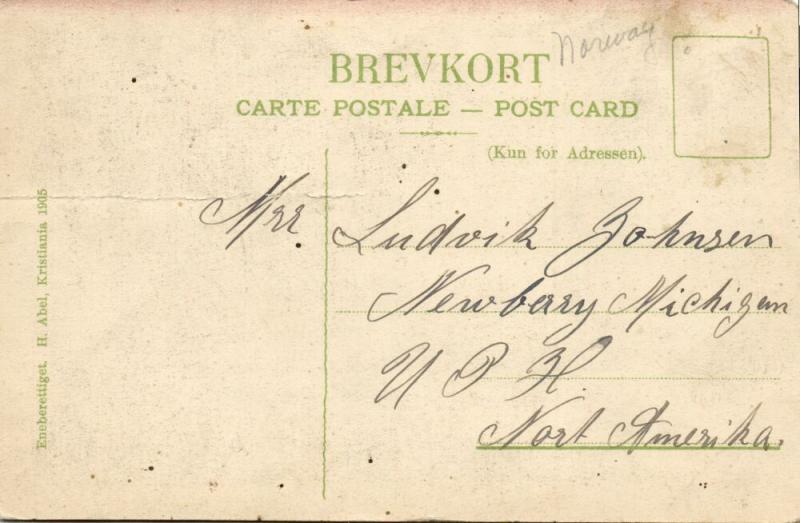 Norway
BREVKORT
CARTE POSTALE — POST CARD
(Kun for Adressen).
Eneberettiget. H. Abel, Kristiania 1905
Mrr Ludvik Johnsen
Newbery Michigan
U P H
Nort Amerika.